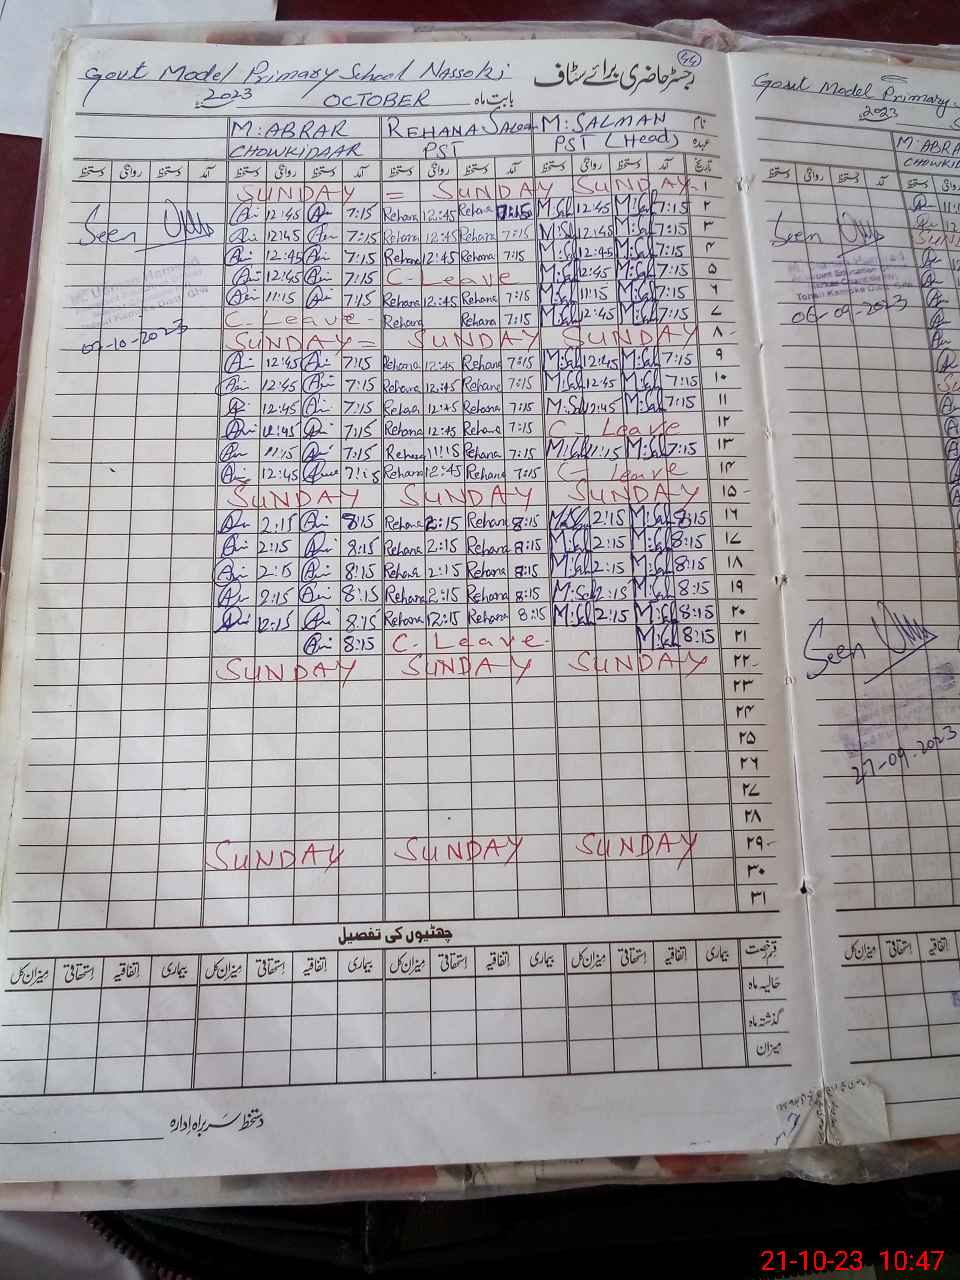 Govt Model Primary School Nassoki رجسٹر حاضری برائے سٹاف 44
2023 OCTOBER بابت ماہ
M: ABRAR REHANA M: SALMAN نام
CHOWKIDAAR PST PST (Head) عہدہ
دستخط روانگی دستخط آمد دستخط روانگی دستخط آمد دستخط روانگی دستخط آمد دستخط روانگی دستخط آمد تاریخ
SUNDAY = SUNDAY SUNDAY ۱
12:45 7:15 Rehana 12:45 Rehana 7:15 M:Sal 12:45 M:Sal 7:15 ۲
Seen 12:45 7:15 Rehana 12:45 Rehana 7:15 M:Sal 12:45 M:Sal 7:15 ۳
12:45 7:15 Rehana 12:45 Rehana 7:15 M:Sal 12:45 M:Sal 7:15 ۴
12:45 7:15 C-Leave M:Sal 12:45 M:Sal 7:15 ۵
11:15 7:15 Rehana 12:45 Rehana 7:15 M:Sal 11:15 M:Sal 7:15 ۶
C-Leave- Rehana Rehana 7:15 M:Sal 12:45 M:Sal 7:15 ۷
-10-2023 SUNDAY = SUNDAY SUNDAY ۸
12:45 7:15 Rehana 12:45 Rehana 7:15 M:Sal 12:45 M:Sal 7:15 ۹
12:45 7:15 Rehana 12:45 Rehana 7:15 M:Sal 12:45 M:Sal 7:15 ۱۰
12:45 7:15 Rehana 12:45 Rehana 7:15 M:Sal 12:45 M:Sal 7:15 ۱۱
12:45 7:15 Rehana 12:45 Rehana 7:15 C-Leave ۱۲
11:15 7:15 Rehana 11:15 Rehana 7:15 M:Sal 11:15 M:Sal 7:15 ۱۳
12:45 7:15 Rehana 12:45 Rehana 7:15 C-leave ۱۴
SUNDAY SUNDAY SUNDAY ۱۵
2:15 8:15 Rehana 2:15 Rehana 8:15 M:Sal 2:15 M:Sal 8:15 ۱۶
2:15 8:15 Rehana 2:15 Rehana 8:15 M:Sal 2:15 M:Sal 8:15 ۱۷
2:15 8:15 Rehana 2:15 Rehana 8:15 M:Sal 2:15 M:Sal 8:15 ۱۸
2:15 8:15 Rehana 2:15 Rehana 8:15 M:Sal 2:15 M:Sal 8:15 ۱۹
12:15 8:15 Rehana 12:15 Rehana 8:15 M:Sal 2:15 M:Sal 8:15 ۲۰
8:15 C-Leave- M:Sal 8:15 ۲۱
SUNDAY SUNDAY SUNDAY ۲۲
۲۳
۲۴
۲۵
۲۶
۲۷
۲۸
SUNDAY SUNDAY SUNDAY ۲۹
۳۰
۳۱
چھٹیوں کی تفصیل
میزان کل استحقاقی اتفاقیہ بیماری میزان کل استحقاقی اتفاقیہ بیماری میزان کل استحقاقی اتفاقیہ بیماری قسم رخصت
حالیہ ماہ
گذشتہ ماہ
میزان
دستخط سربراہ ادارہ
Govt Model Primary
2023
M: ABRA
CHOWKID
دستخط روانگی دستخط آمد دستخط
Seen
06-09-2023
Seen
27-09-2023
میزان کل استحقاقی اتفاقیہ
21-10-23 10:47